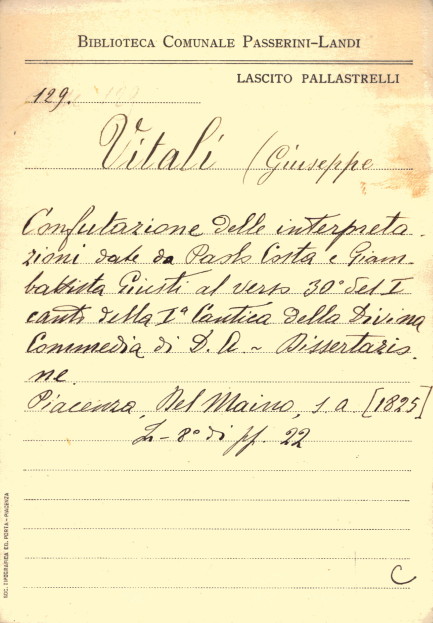 BIBLIOTECA COMUNALE PASSERINI-LANDI
LASCITO PALLASTRELLI
129.
Vitali (Giuseppe
Confutazione delle interpreta-
zioni date da Paolo Costa e Giam-
battista Giusti al verso 30° del I
canto della Iª Cantica della Divina
Commedia di D. A. - Dissertazio-
ne.
Piacenza, Del Maino, s a [1825]
In-8° di pp. 22
C
SOC. TIPOGRAFICA ED. PORTA - PIACENZA